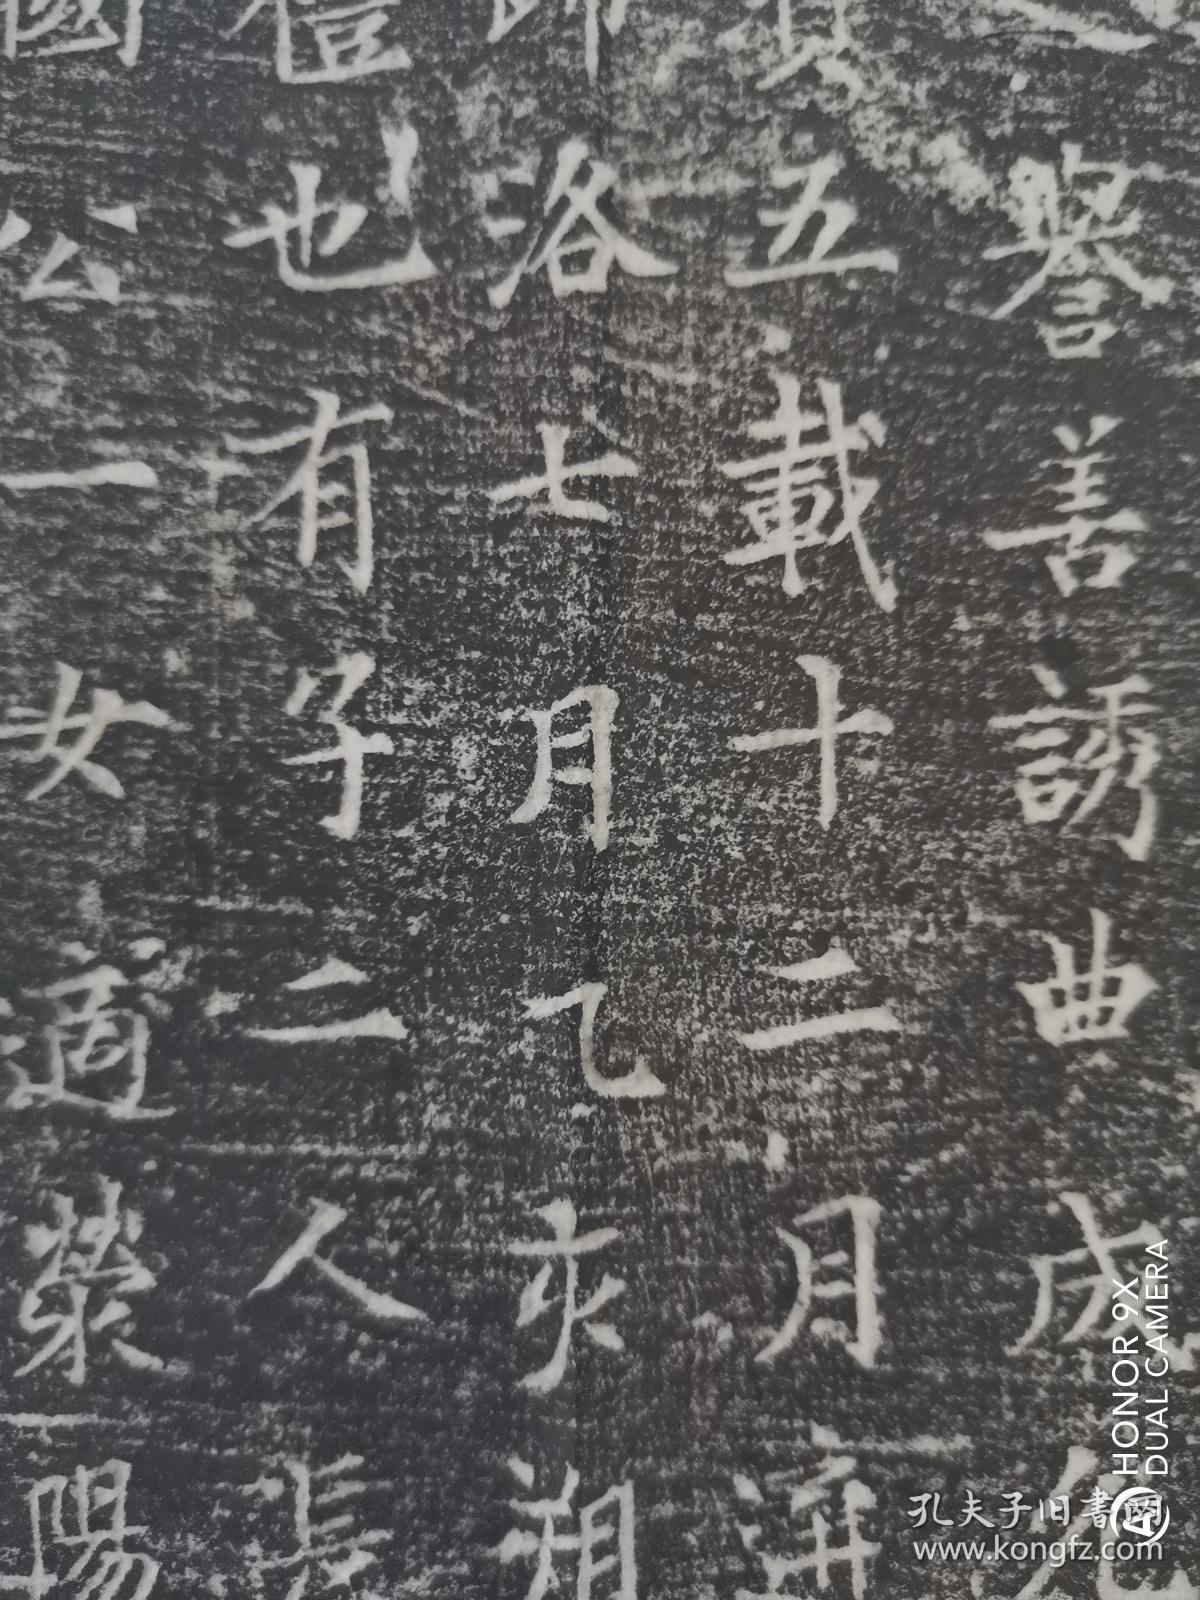 譽善誘曲成
五載十二月
洛七月乙亥朔
也有子二人長
國公一女適滎陽
HONOR 9X
DUAL CAMERA
孔夫子旧书网
www.kongfz.com